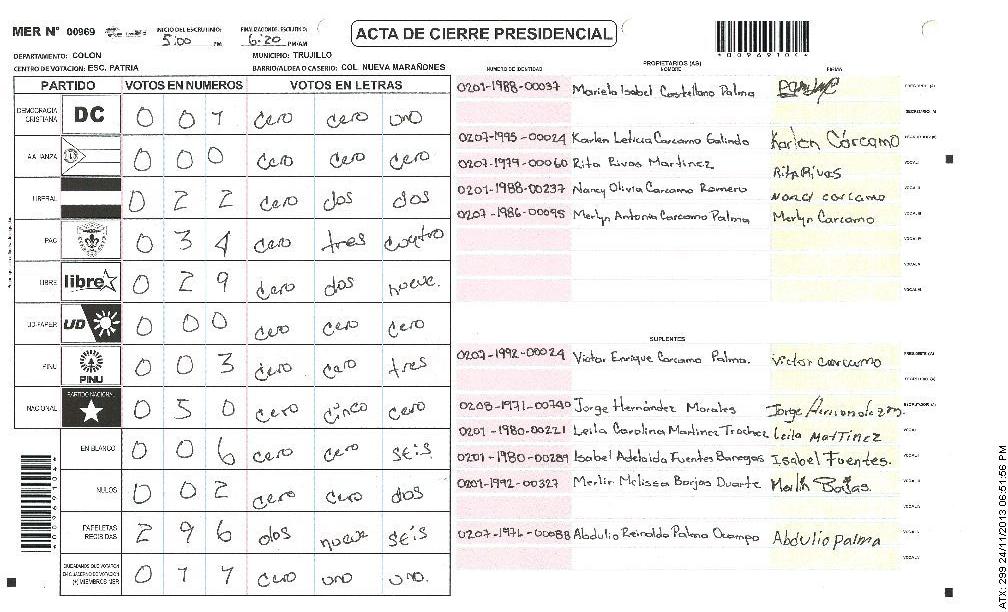 MER N° 00969 INICIO DEL ESCRUTINIO: 5:00 PM FINALIZACION DE ESCRUTINIO: 6:20 PM/AM
ACTA DE CIERRE PRESIDENCIAL
*00969104*
DEPARTAMENTO: COLON MUNICIPIO: TRUJILLO
CENTRO DE VOTACION: ESC. PATRIA BARRIO/ALDEA O CASERIO: COL NUEVA MARAÑONES
PARTIDO VOTOS EN NUMEROS VOTOS EN LETRAS
DEMOCRACIA CRISTIANA DC 0 0 1 cero cero uno
ALIANZA 0 0 0 cero cero cero
LIBERAL 0 2 2 cero dos dos
PAC 0 3 4 cero tres cuatro
LIBRE libre 0 2 9 cero dos nueve.
UD-FAPER UD 0 0 0 cero cero cero
PINU PINU 0 0 3 cero cero tres
NACIONAL PARTIDO NACIONAL 0 5 0 cero cinco cero
EN BLANCO 0 0 6 cero cero seis
NULOS 0 0 2 cero cero dos
PAPELETAS RECIBIDAS 2 9 6 dos nueve seis
CIUDADANOS QUE VOTARON
EN CUADERNO DE VOTACION
(+) MIEMBROS MER 0 1 1 cero uno uno.
PROPIETARIOS (AS)
NUMERO DE IDENTIDAD NOMBRE FIRMA
0201-1988-00037 Mariela Isabel Castellano Palma PRESIDENTE (A)
SECRETARIO (A)
0207-1995-00024 Karlen Leticia Carcamo Galindo Karlen Cárcamo ESCRUTADOR (A)
0207-1979-00060 Rita Rivas Martinez Rita Rivas VOCAL I
0201-1988-00237 Nancy Olivia Carcamo Romero VOCAL II
0207-1986-00095 Merlyn Antonia Carcamo Palma Merlyn Carcamo VOCAL III
VOCAL IV
VOCAL V
VOCAL VI
SUPLENTES
0207-1992-00024 Victor Enrique Carcamo Palma. Victor carcamo PRESIDENTE (A)
SECRETARIO (A)
0208-1971-00740 Jorge Hernández Morales ESCRUTADOR (A)
0201-1980-00221 Leila Carolina Martinez Trochez Leila Martinez VOCAL I
0201-1980-00289 Isabel Adelaida Fuentes Banegas Isabel Fuentes. VOCAL II
0201-1992-00327 Merlin Melissa Borjas Duarte Merlin Borjas. VOCAL III
VOCAL IV
0207-1976-00088 Abdulio Reinaldo Palma Ocampo Abdulio palma VOCAL V
VOCAL VI
*00969104*
ATX: 299 24/11/2013 06:51:56 PM